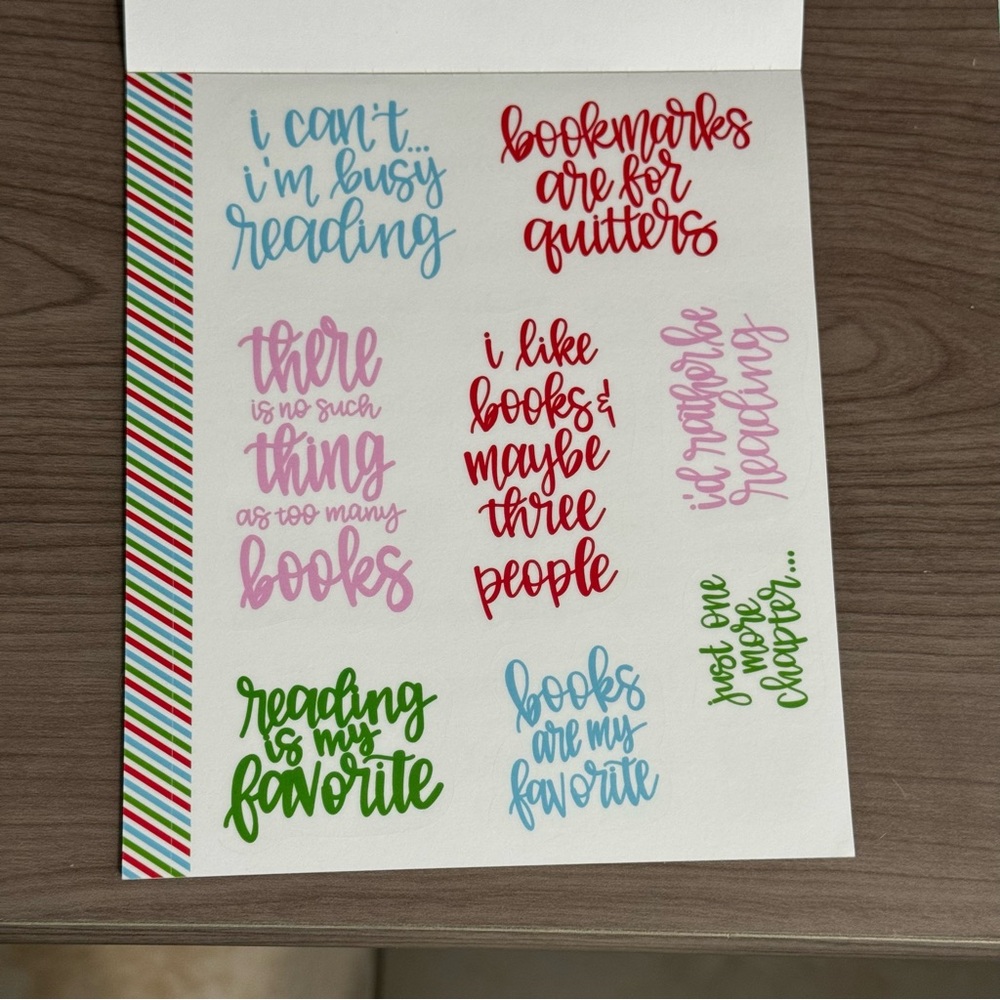 i can't...
i'm busy
reading
bookmarks
are for
quitters
there
is no such
thing
as too many
books
i like
books &
maybe
three
people
i'd rather be
reading
just one
more
chapter...
reading
is my
favorite
books
are my
favorite